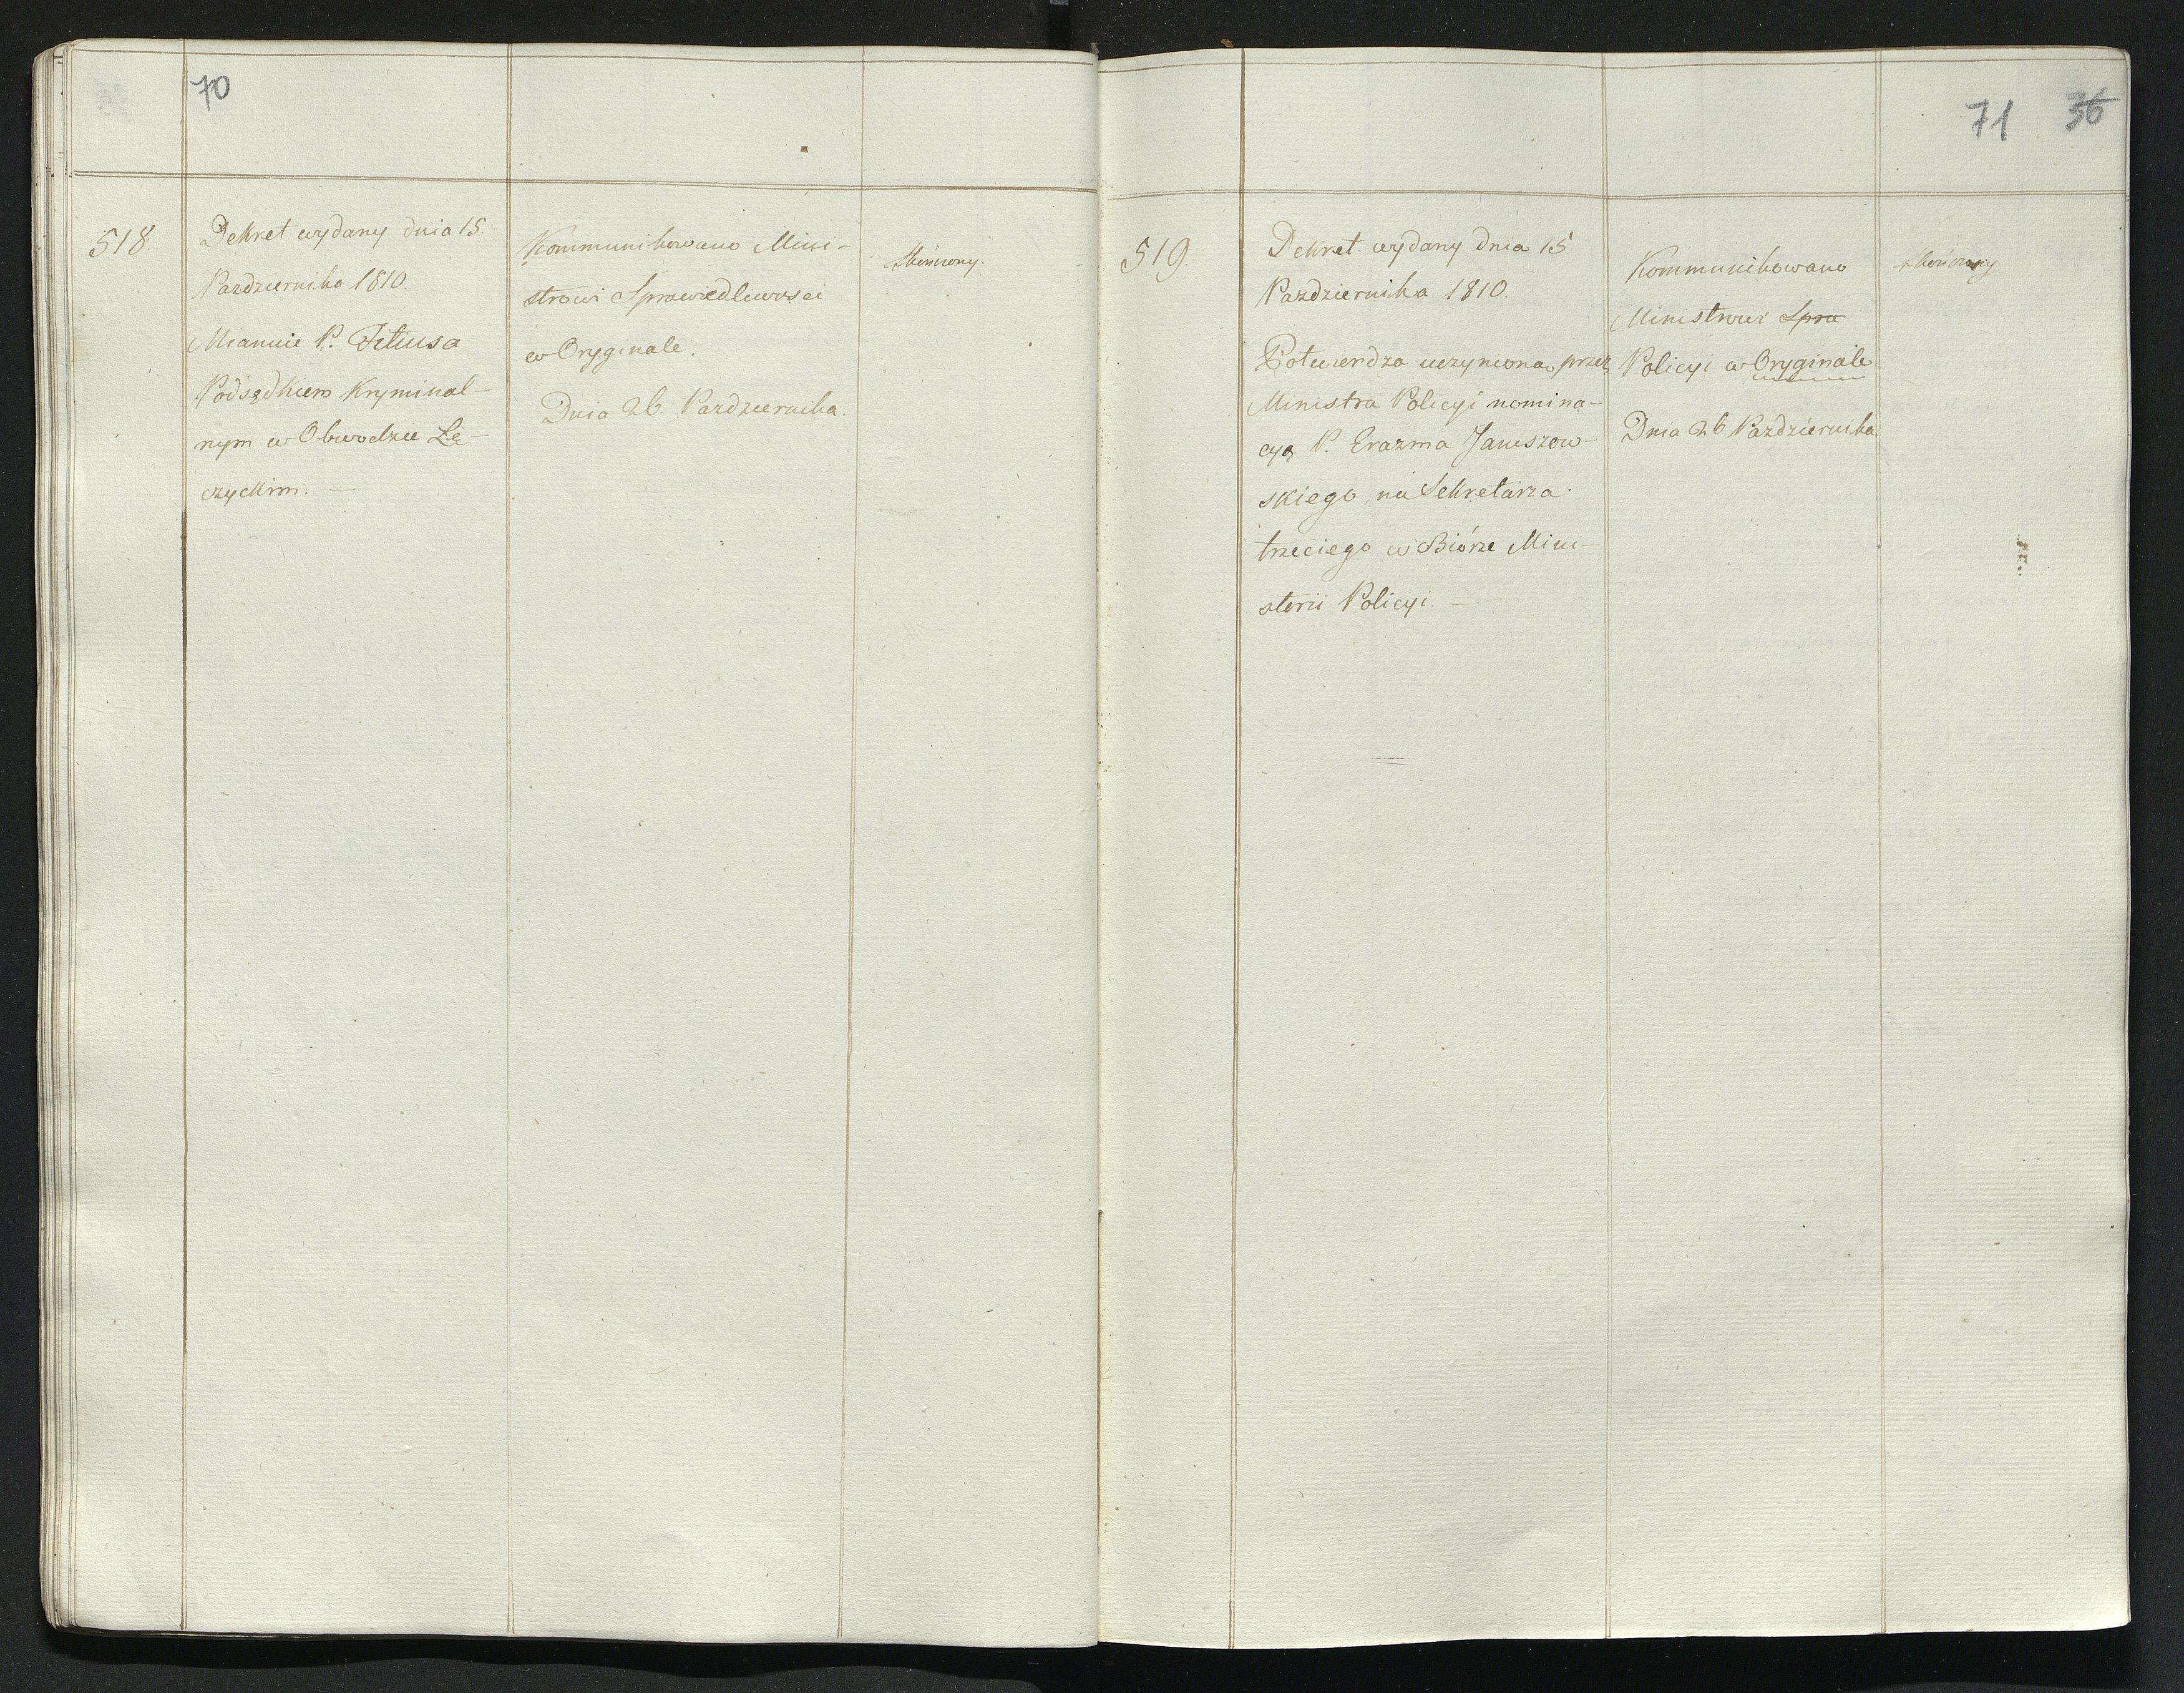 70
518.
Dekret wydany dnia 15.
Pazdziernika 1810.
Mianuie P. Titiusa
Podsędkiem Kryminal-
nym w Obwodzie Łę-
czyckim. —
Kommunikowano Mini-
strowi Sprawiedliwosci
w Oryginale.
Dnia 26. Pazdziernika.
Skończony.
71 36
519.
Dekret wydany dnia 15
Pazdziernika 1810.
Potwierdza uczynioną przez
Ministra Policyi nomina-
cyą P. Erazma Janiszow-
skiego na Sekretarza
trzeciego w Biórze Mini-
sterii Policyi. —
Kommunikowano
Ministrowi Spra
Policyi w Oryginale
Dnia 26 Pazdziernika.
skończony